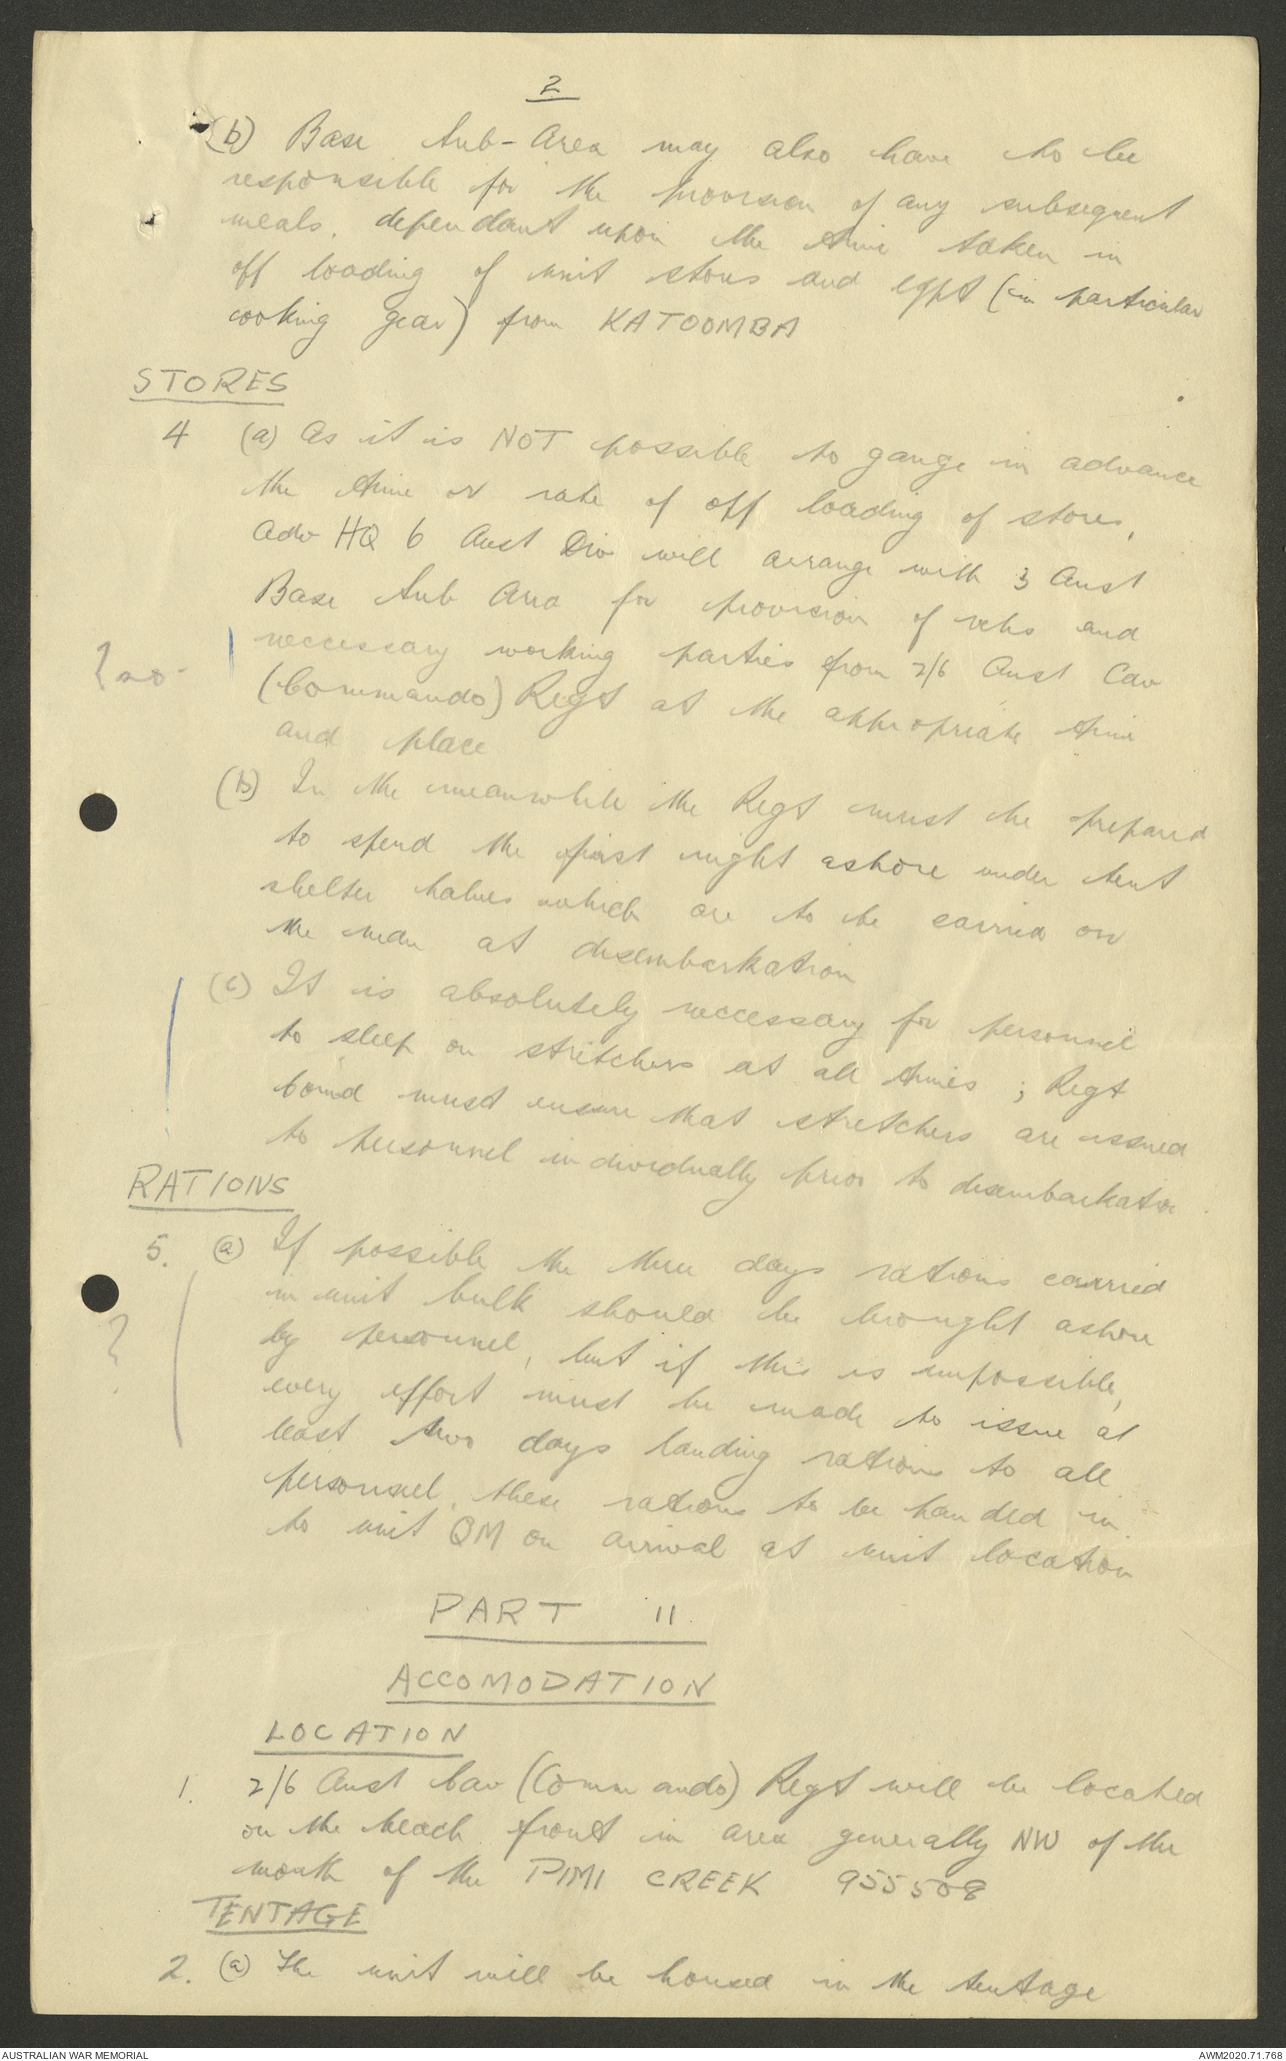 2
(b) Base Sub-Area may also have to be
responsible for the provision of any subsequent
meals, dependant upon the time taken in
off loading of unit stores and eqpt (in particular
cooking gear) from KATOOMBA
STORES
4 (a) As it is NOT possible to gauge in advance
the time or rate of off loading of stores,
Adv HQ 6 Aust Div will arrange with 3 Aust
Base Sub Area for provision of vehs and
neccessary working parties from 2/6 Aust Cav
(Commando) Regt at the appropriate time
and place
(b) In the meanwhile the Regt must be prepared
to spend the first night ashore under tent
shelter halves which are to be carried on
the man at disembarkation
(c) It is absolutely neccessary for personnel
to sleep on stretchers at all times; Regt
comd must ensure that stretchers are issued
to personnel individually prior to disembarkation
RATIONS
5. (a) If possible the three days rations carried
in unit bulk should be brought ashore
?
by personnel, but if this is impossible,
every effort must be made to issue at
least two days landing rations to all
personnel, these rations to be handed in
to unit QM on arrival at unit location
PART 11.
ACCOMODATION
LOCATION
1. 2/6 Aust Cav (Commando) Regt will be located
on the beach front in area generally NW of the
mouth of the PIMI CREEK 955508
TENTAGE
2. (a) The unit will be housed in the tentage
AUSTRALIAN WAR MEMORIAL
AWM2020.71.768